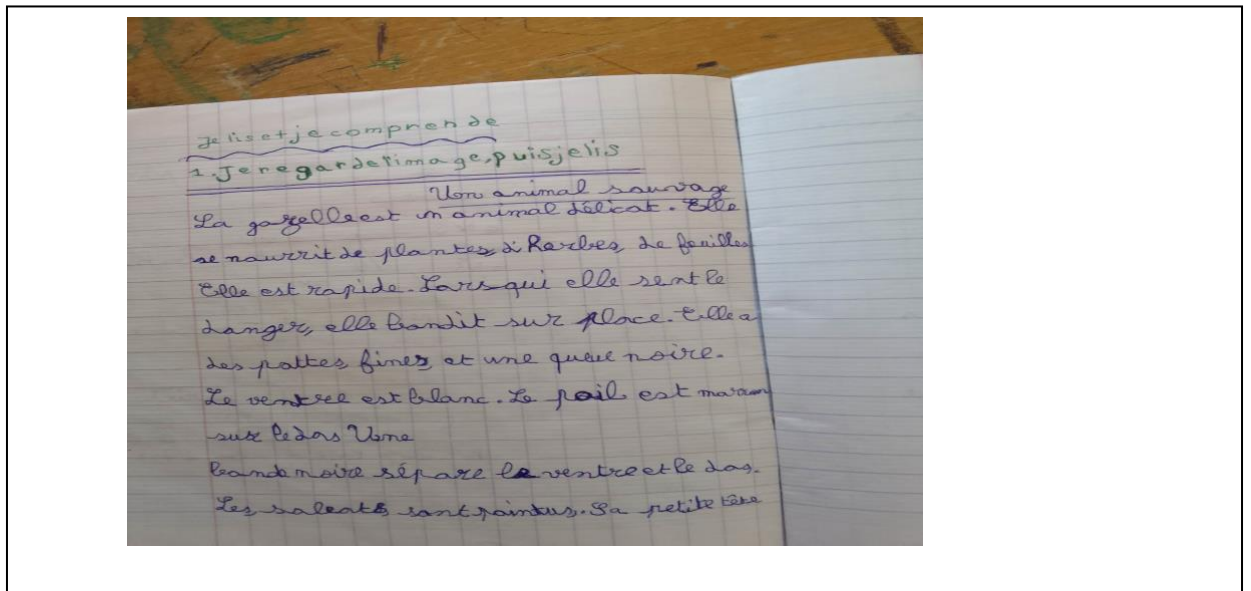 Je lis et je comprende
1. Je regarde l'image, puis je lis
Uon animal sauvage
La gazelle est un animal délicat. Elle
se nourrit de plantes, d'herbes, de feuilles
Elle est rapide. Lorsqui elle sent le
danger, elle bondit sur place. Elle a
des pattes fines et une queue noire.
Le ventree est blanc. Le poil est marron
sur le dos Une
bande noire sépare le ventre et le dos.
Les saboats sont pointus. Sa petite tête